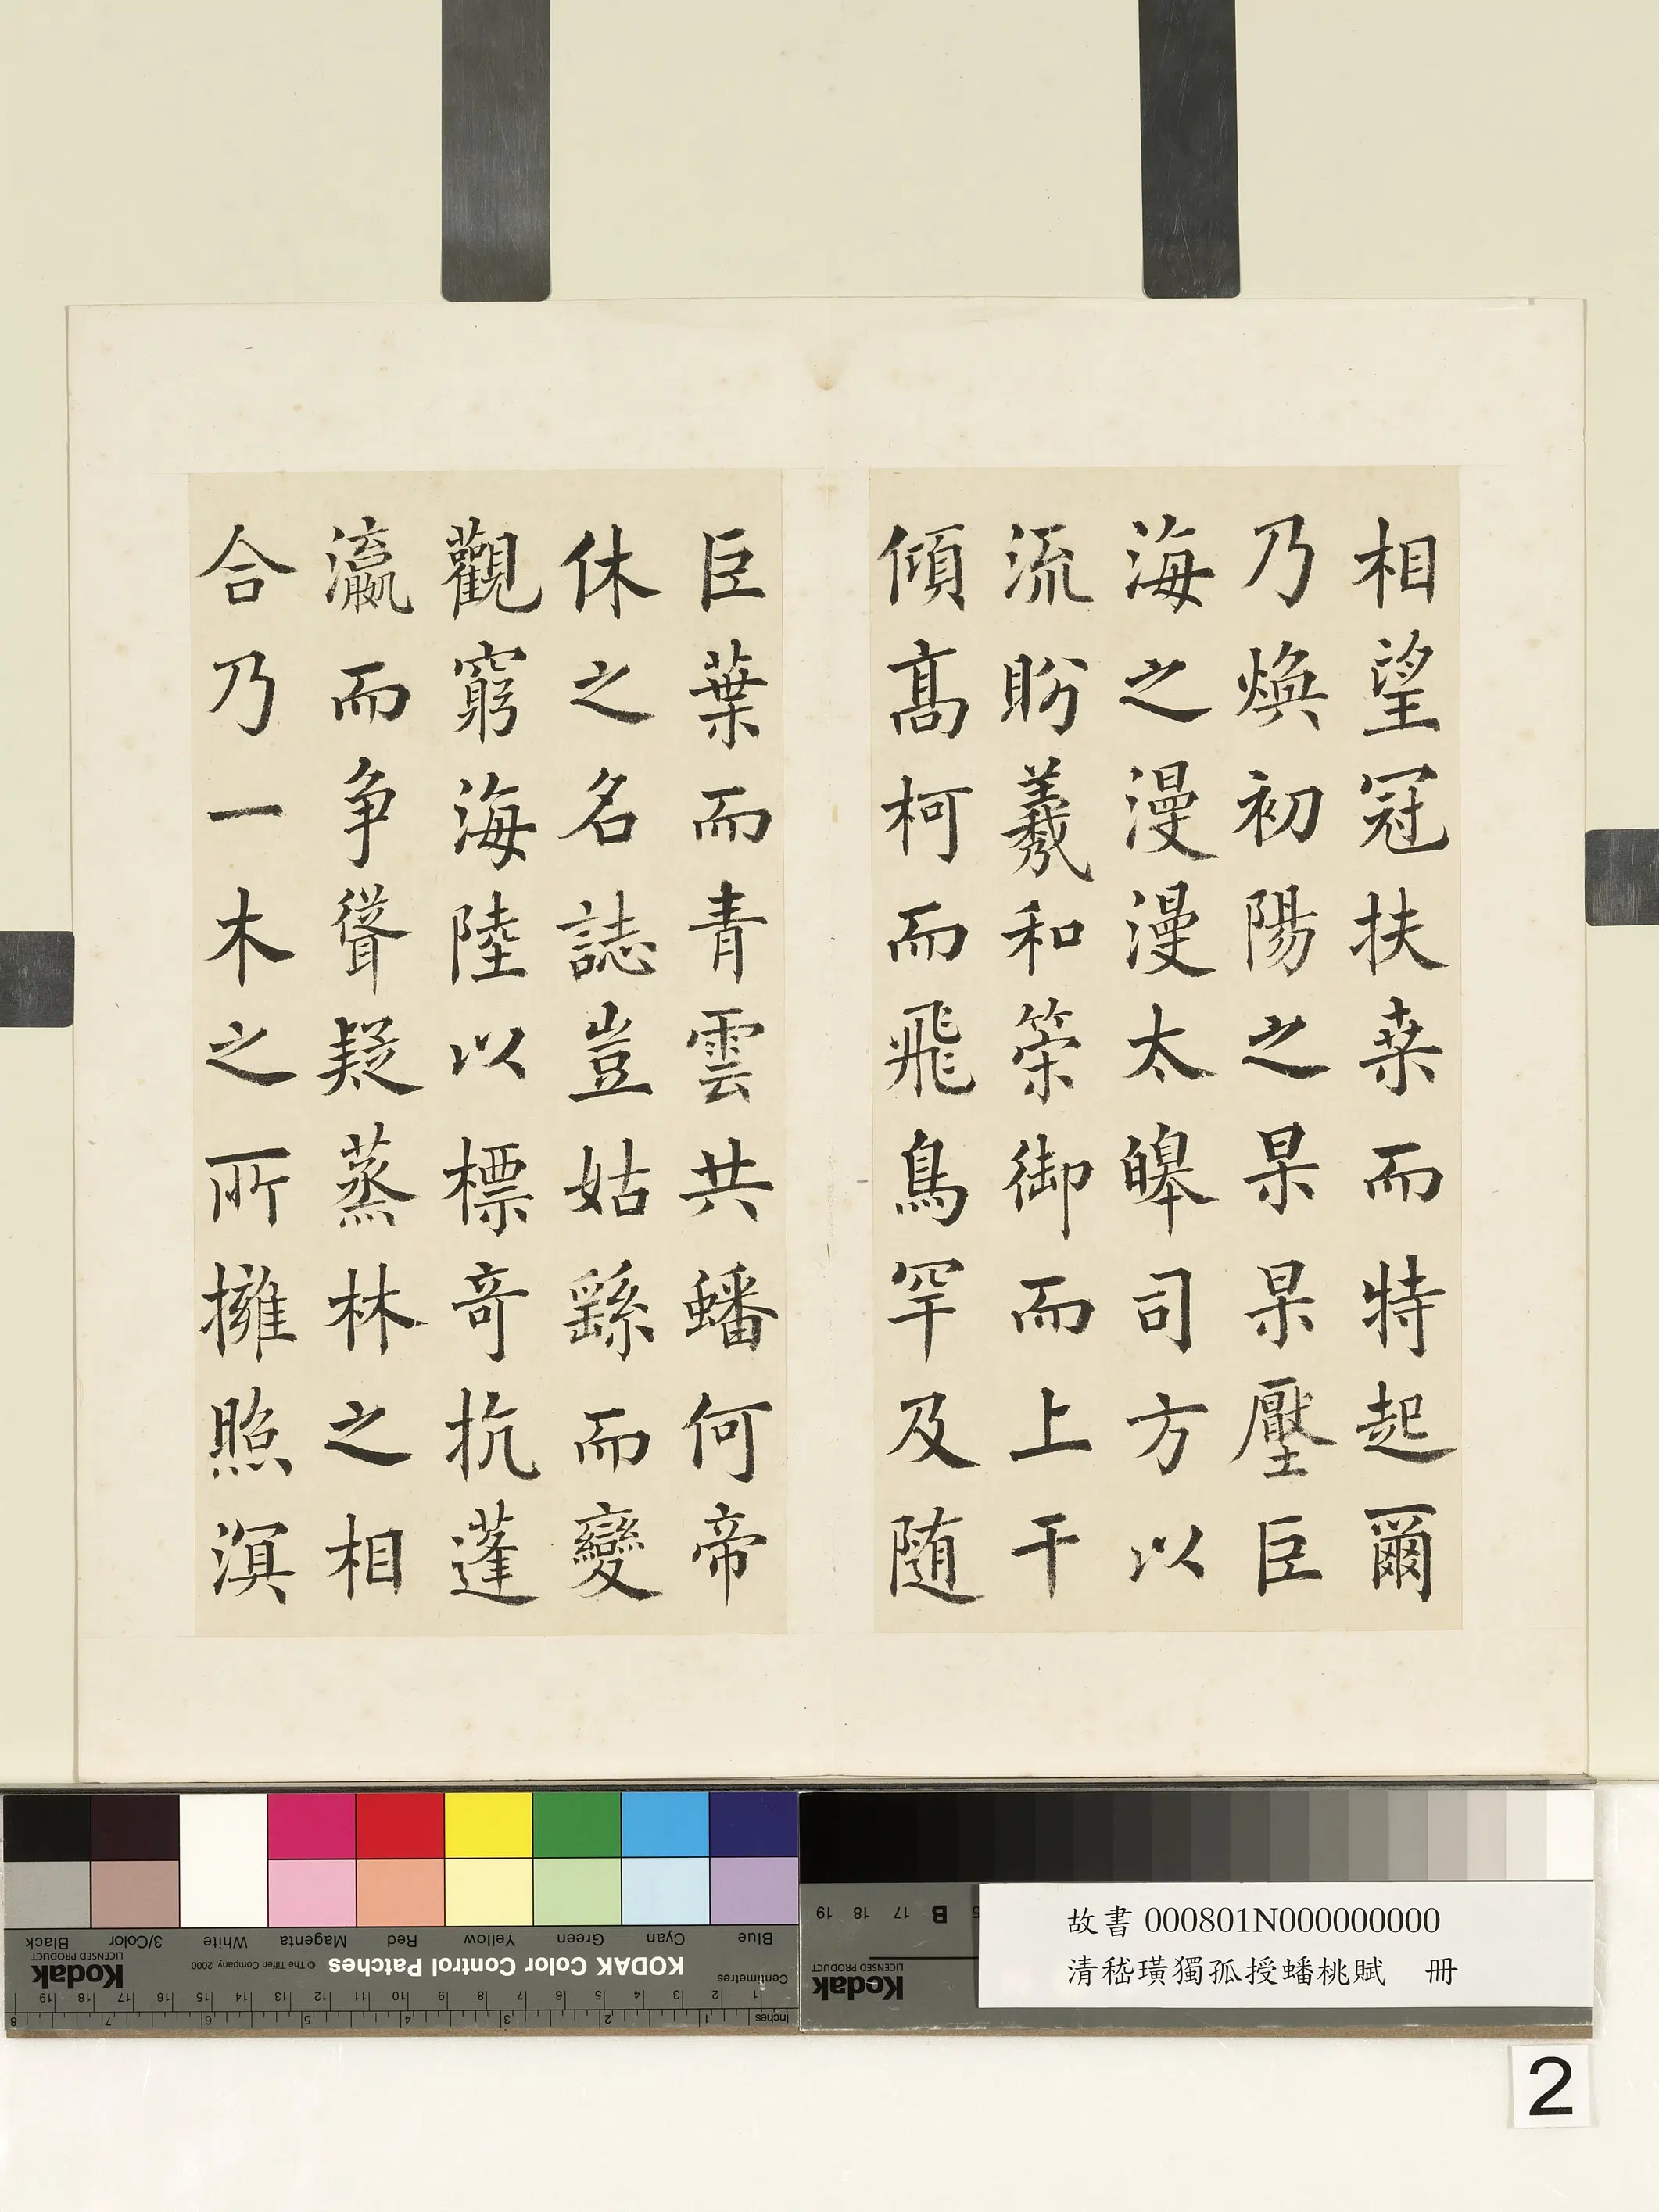 相望冠扶桒而特起爾
乃煥初陽之杲杲壓巨
海之漫漫太皞司方以
流盼羲和䇿御而上干
傾髙柯而飛鳥罕及随
巨葉而青雲共蟠何帝
休之名誌豈姑繇而變
觀窮海陸以標竒抗蓬
瀛而争聳疑蒸林之相
合乃一木之所擁照溟
Blue Cyan Green Yellow Red Magenta White 3/Color Black
KODAK Color Control Patches
© The Tiffen Company, 2000
Kodak
LICENSED PRODUCT
Centimetres
1 2 3 4 5 6 7 8 9 10 11 12 13 14 15 16 17 18 19
Inches
1 2 3 4 5 6 7 8
B 17 18 19
Kodak
LICENSED PRODUCT
故書000801N000000000
清嵇璜獨孤授蟠桃賦 冊
2